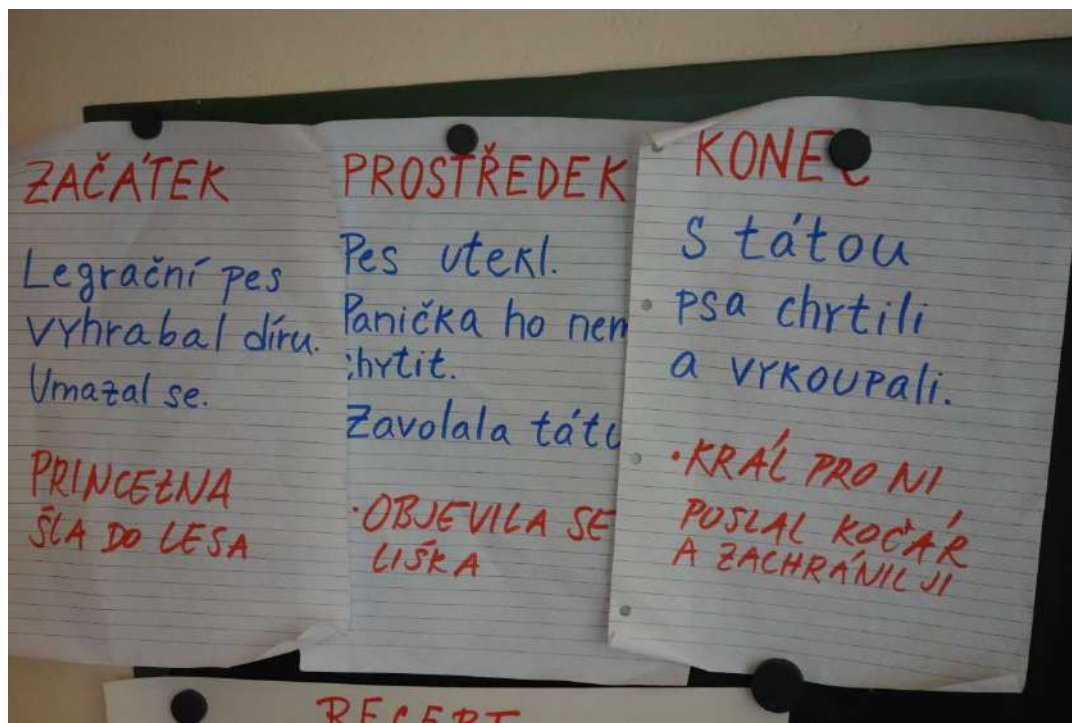 ZAČÁTEK
Legrační pes
vyhrabal díru.
Umazal se.
PRINCEZNA
ŠLA DO LESA
PROSTŘEDEK
Pes utekl.
Panička ho
Zavolala
·OBJEVILA SE
LIŠKA
KONEC
S tátou
psa chrtili
a vykoupali.
·KRÁL PRO NI
POSLAL KOČÁR
A ZACHRÁNIL JI
RECEPT